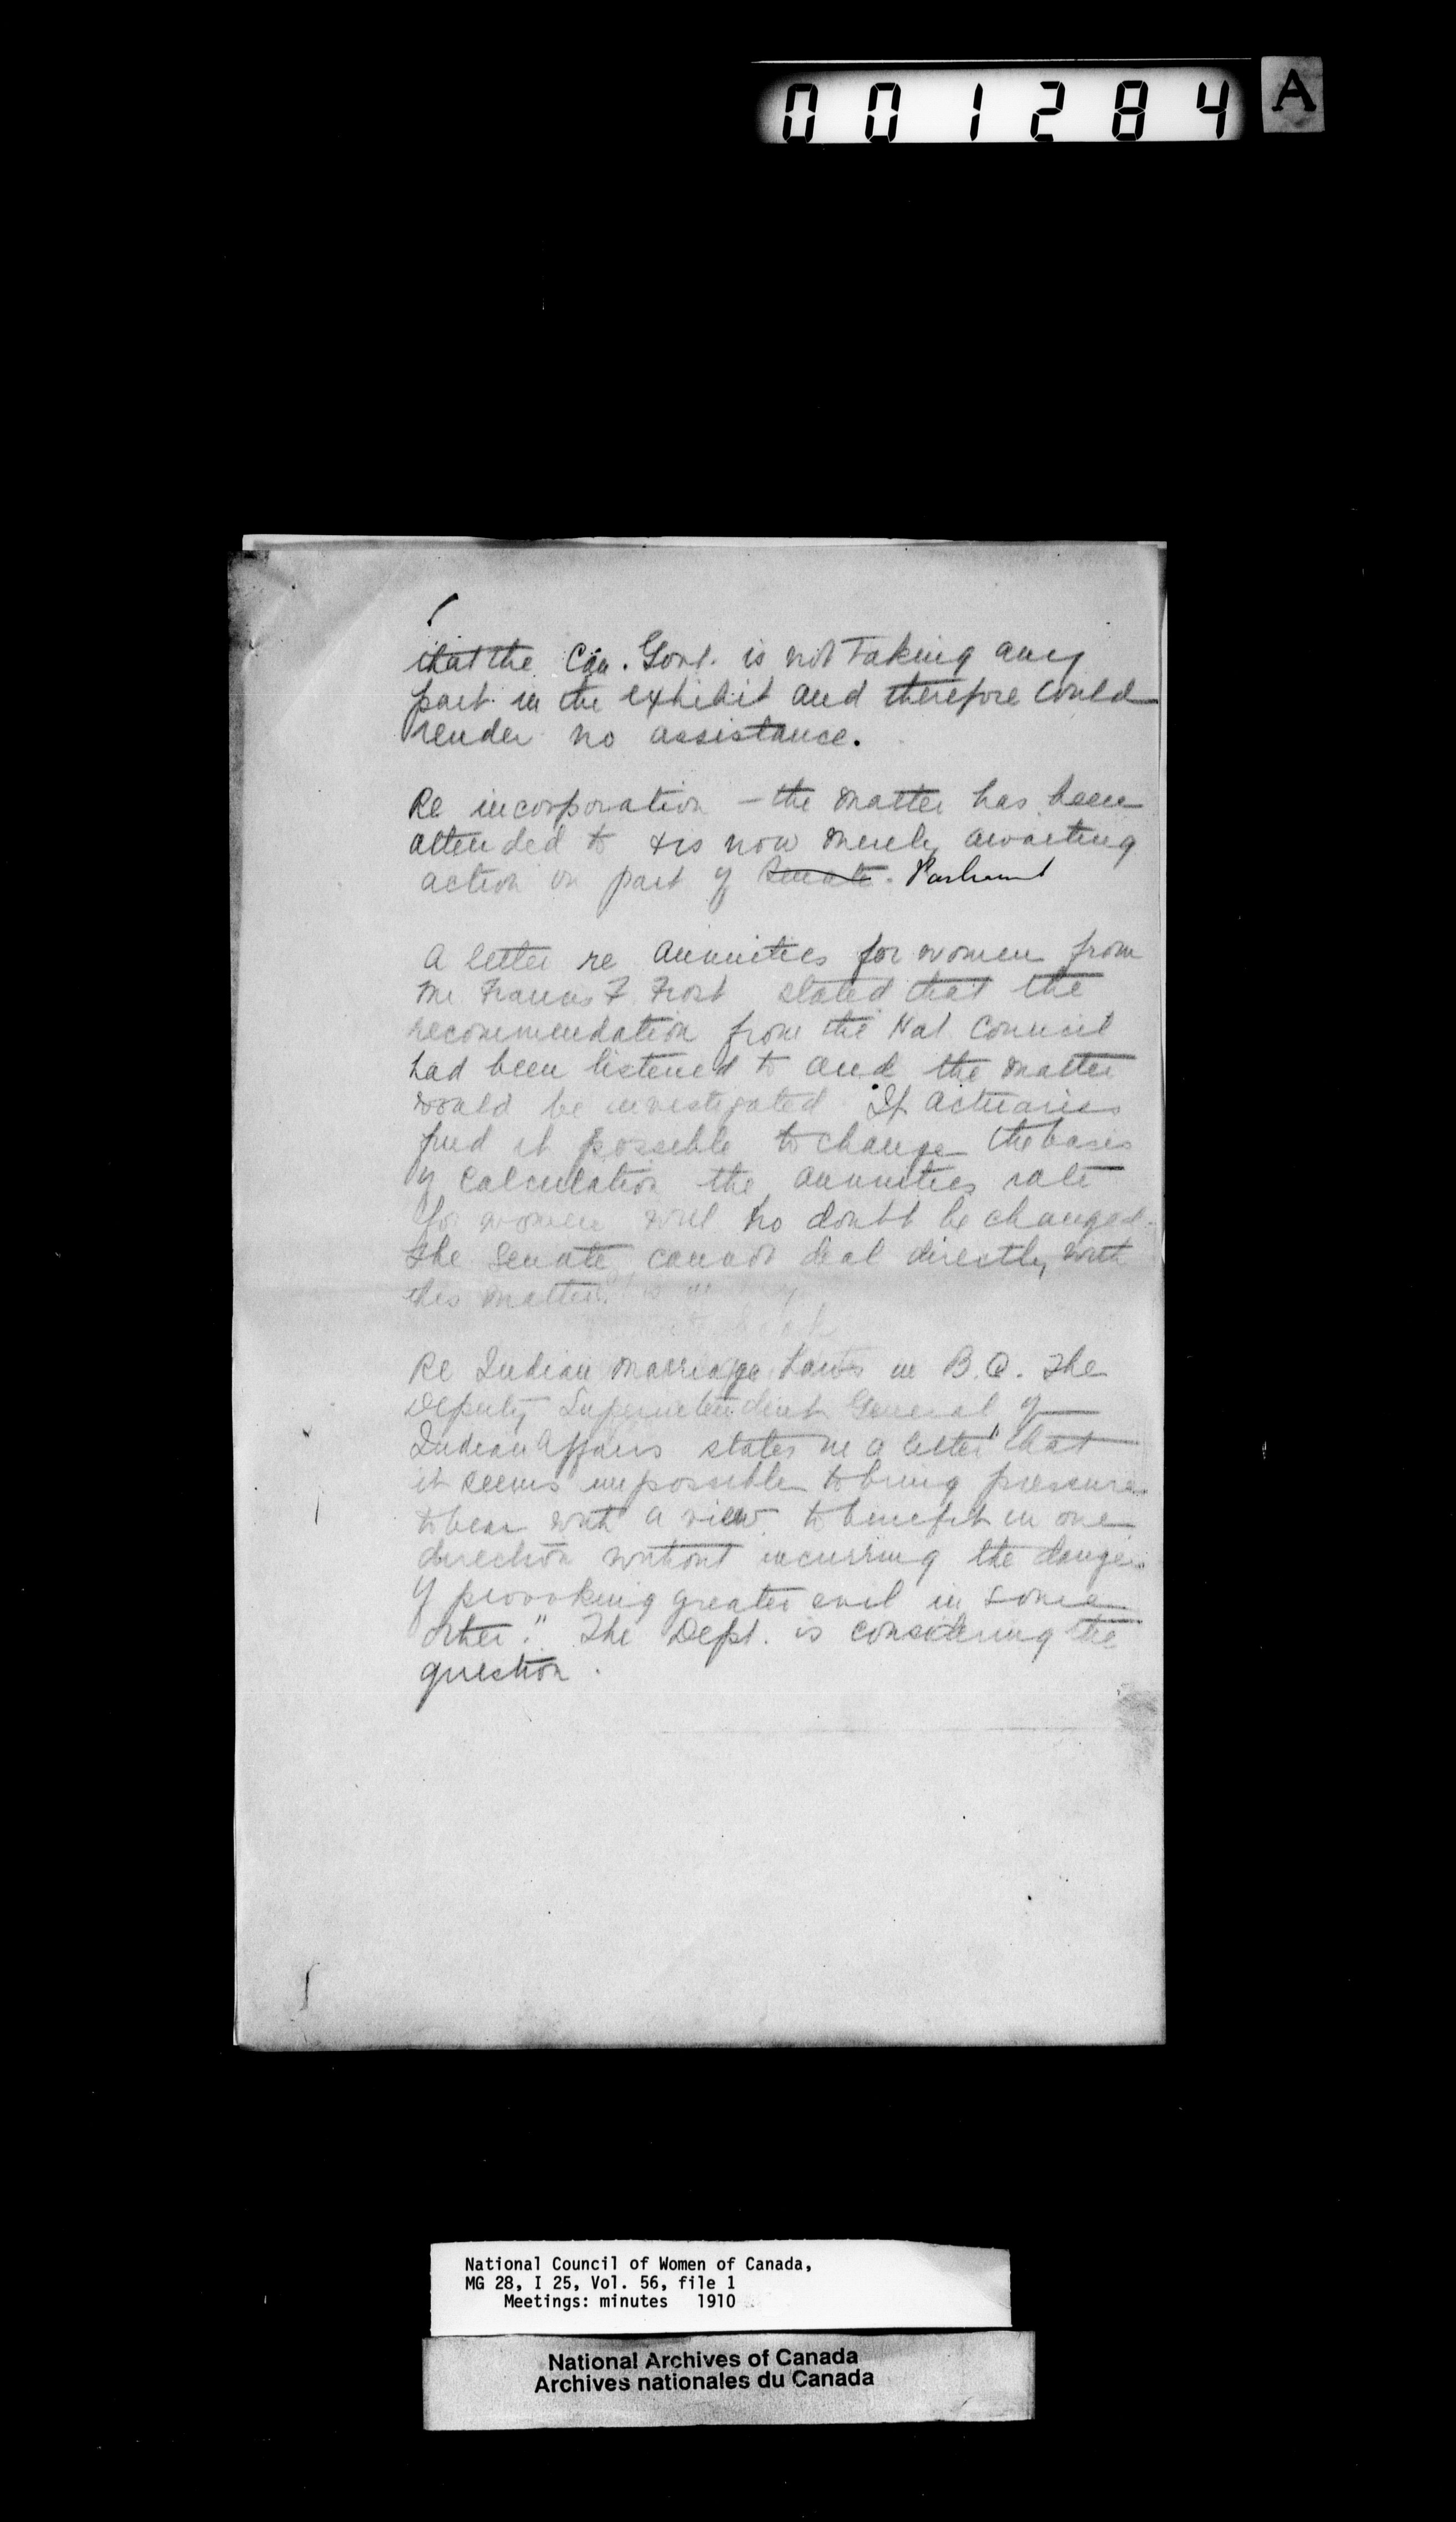 001284 A
that the Can. Govt. is not taking any
part in the exhibit and therefore could
render no assistance.
Re incorporation - the matter has been
attended to & is now merely awaiting
action on part of Senate. Parliament
A letter re annuities for women from
Mr. Francis F. Frost stated that the
recommendation from the Nat Council
had been listened to and the matter
would be investigated. If actuaries
find it possible to change the basis
of calculation the annuities rate
for women will no doubt be changed.
The Senate cannot deal directly with
this matter.
Re Indian Marriage Laws in B.C. The
Deputy Superintendent General of
Indian Affairs states in a letter "that
it seems impossible to bring pressure
to bear with a view to benefit in one
direction without incurring the danger
of provoking greater evil in some
other." The Dept. is considering the
question.
National Council of Women of Canada,
MG 28, I 25, Vol. 56, file 1
Meetings: minutes 1910
National Archives of Canada
Archives nationales du Canada